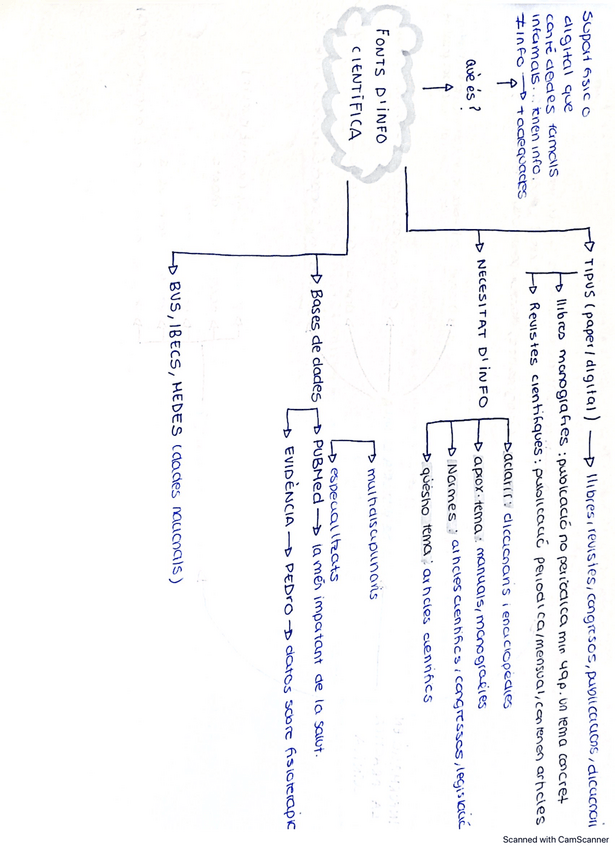 Suport físic o
digital que
conté dades formals
informals... tenen info.
≠ info → + adequades
què és?
FONTS D'INFO
CIENTÍFICA
TIPUS (paper/digital) → llibres, revistes, congresos, publicacions, diccionari
llibres monografies: publicació no periòdica min 49p. un tema concret
Revistes científiques: publicació periodica/mensual, contenen articles
NECESITAT D'INFO
aclarir: diccionaris i enciclopedies
aprox. tema: manuals, monografies
Normes: articles científics, congressos, legislació
qüestio tema: articles científics
Bases de dades
multidisciplinaris
especialitzats
PUBMed → la més important de la salut.
EVIDÈNCIA → PEDRO → datos sobre fisioterapia
BVS, IBECS, MEDES (dades nacionals)
Scanned with CamScanner